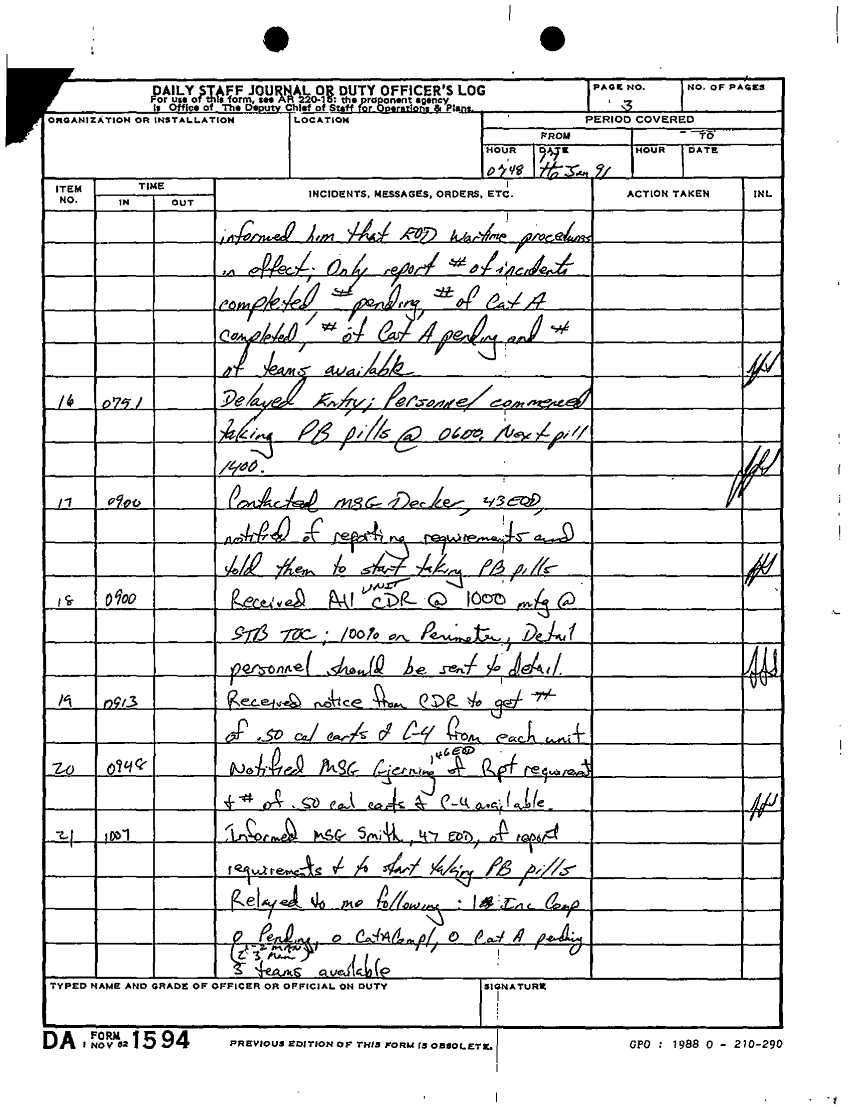 DAILY STAFF JOURNAL OR DUTY OFFICER'S LOG
For use of this form, see AR 220-15: the proponent agency
is Office of The Deputy Chief of Staff for Operations & Plans.
PAGE NO.
3
NO. OF PAGES
ORGANIZATION OR INSTALLATION
LOCATION
PERIOD COVERED
FROM
TO
HOUR
DATE
HOUR
DATE
0748
Jan 91
ITEM NO.
TIME
IN
OUT
INCIDENTS, MESSAGES, ORDERS, ETC.
ACTION TAKEN
INL
informed him that EOD Wartime procedures
in effect; Only report # of incidents
completed, # pending, # of Cat A
completed, # of Cat A pending and #
of teams available
16 0751 Delayed Entry; Personnel commenced
taking PB pills @ 0600. Next pill
1400.
17 0900 Contacted MSG Decker, 43 EOD,
notified of reporting requirements and
told them to start taking PB pills
18 0900 Received All UNIT CDR @ 1000 mtg @
STB TOC; 100% on Perimeter, Detail
personnel should be sent to detail.
19 0913 Received notice from CDR to get #
of .50 cal carts & C-4 from each unit
20 0948 Notified MSG Gjerning 146 EOD of Rpt requirement
& # of .50 cal carts & C-4 available.
21 1007 Informed MSG Smith, 47 EOD, of report
requirements & to start taking PB pills
Relayed to me following: 1 Inc Comp
0 Pending, 0 Cat A Compl, 0 Cat A pending
(1-2 man
2 3 Man)
3 teams available
TYPED NAME AND GRADE OF OFFICER OR OFFICIAL ON DUTY
SIGNATURE
DA FORM 1 NOV 62 1594
PREVIOUS EDITION OF THIS FORM IS OBSOLETE.
GPO : 1988 O - 210-290